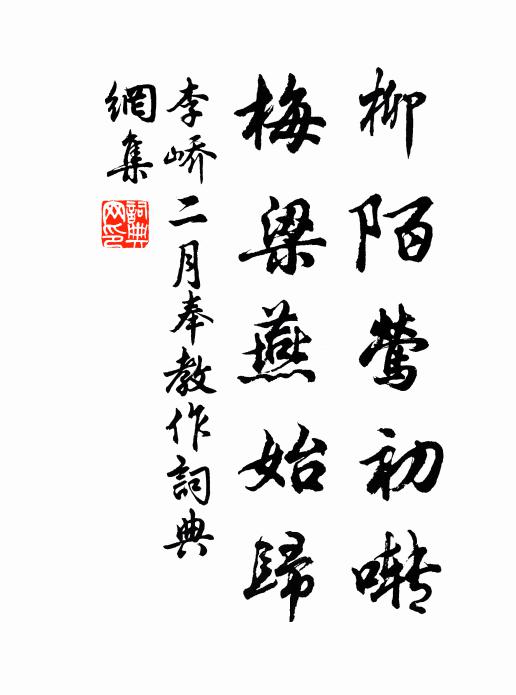 柳陌鶯初囀
梅梁燕始歸
李嶠二月奉教作詞典
網集
詞典網印